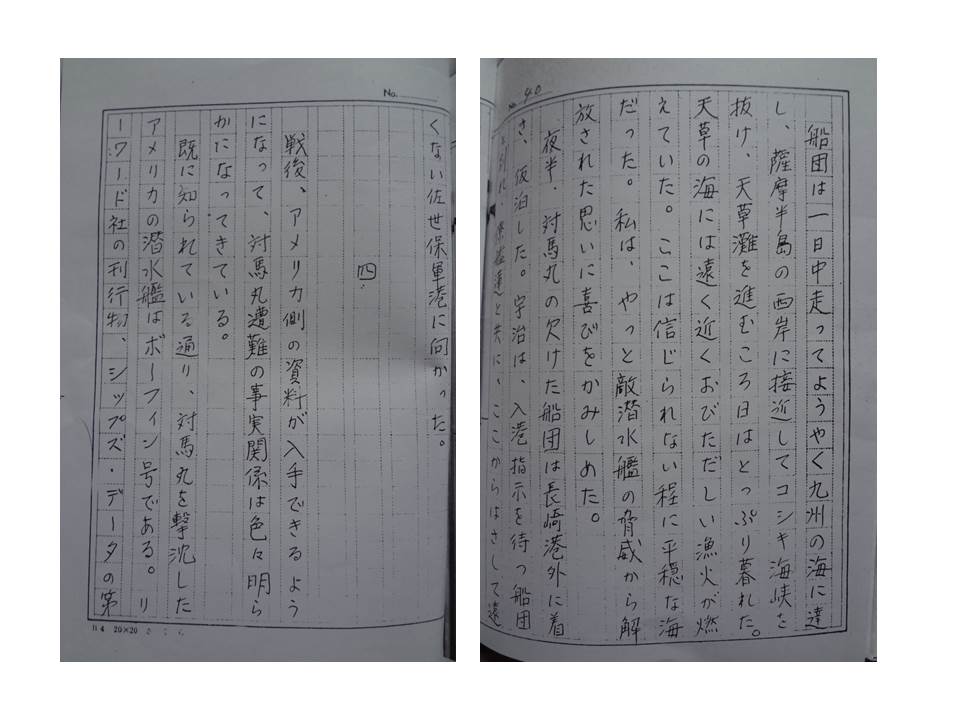 No. 40
船団は一日中走ってようやく九州の海に達
し、薩摩半島の西岸に接近してコシキ海峡を
抜け、天草灘を進むころ日はとっぷり暮れた。
天草の海には遠く近くおびただしい漁火が燃
えていた。ここは信じられない程に平穏な海
だった。私は、やっと敵潜水艦の脅威から解
放された思いに喜びをかみしめた。
夜半、対馬丸の欠けた船団は長崎港外に着
き、仮泊した。宇治は、入港指示を待つ船団
と別れ、僚艦蓮と共に、ここからはさして遠
No.
くない佐世保軍港に向かった。
四
戦後、アメリカ側の資料が入手できるよう
になって、対馬丸遭難の事実関係は色々明ら
かになってきている。
既に知られている通り、対馬丸を撃沈した
アメリカの潜水艦はボーフィン号である。リ
ーワード社の刊行物、シップズ・データの第
B4 20×20 さくら